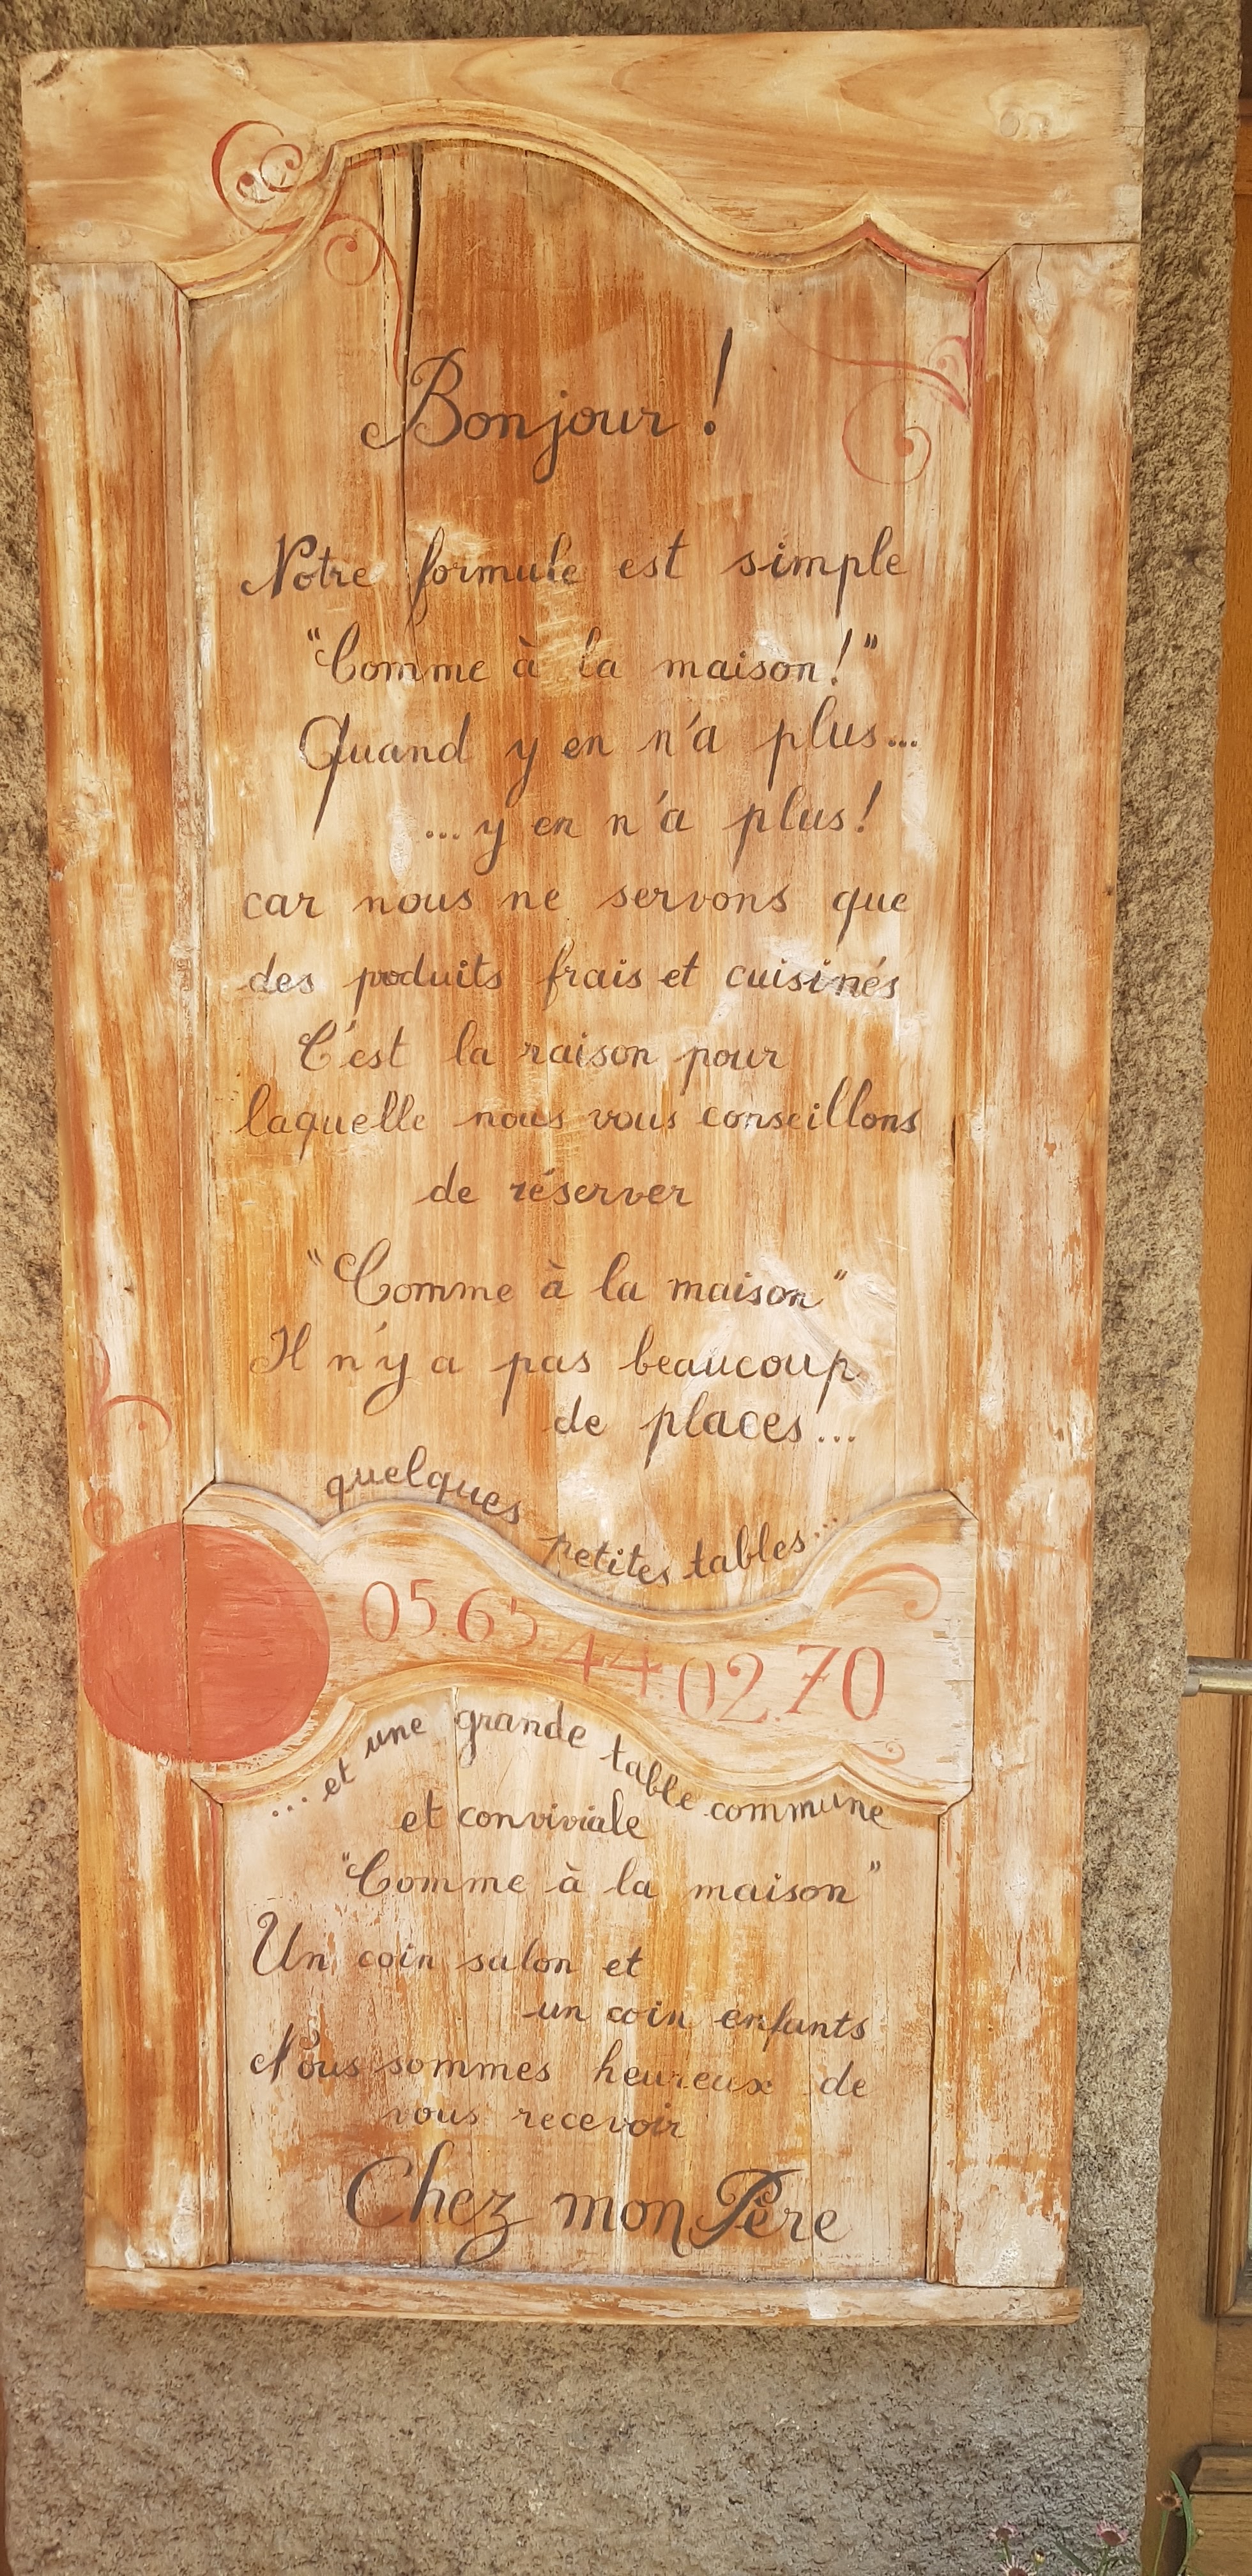 Bonjour !
Notre formule est simple
"Comme à la maison!"
Quand y en n'a plus...
...y en n'a plus!
car nous ne servons que
des poduits frais et cuisinés
C'est la raison pour
laquelle nous vous conseillons
de réserver
"Comme à la maison"
Il n'y a pas beaucoup
de places...
quelques petites tables...
05.65.44.02.70
...et une grande table commune
et conviviale
"Comme à la maison"
Un coin salon et
un coin enfants
Nous sommes heureux de
vous recevoir
Chez mon Père